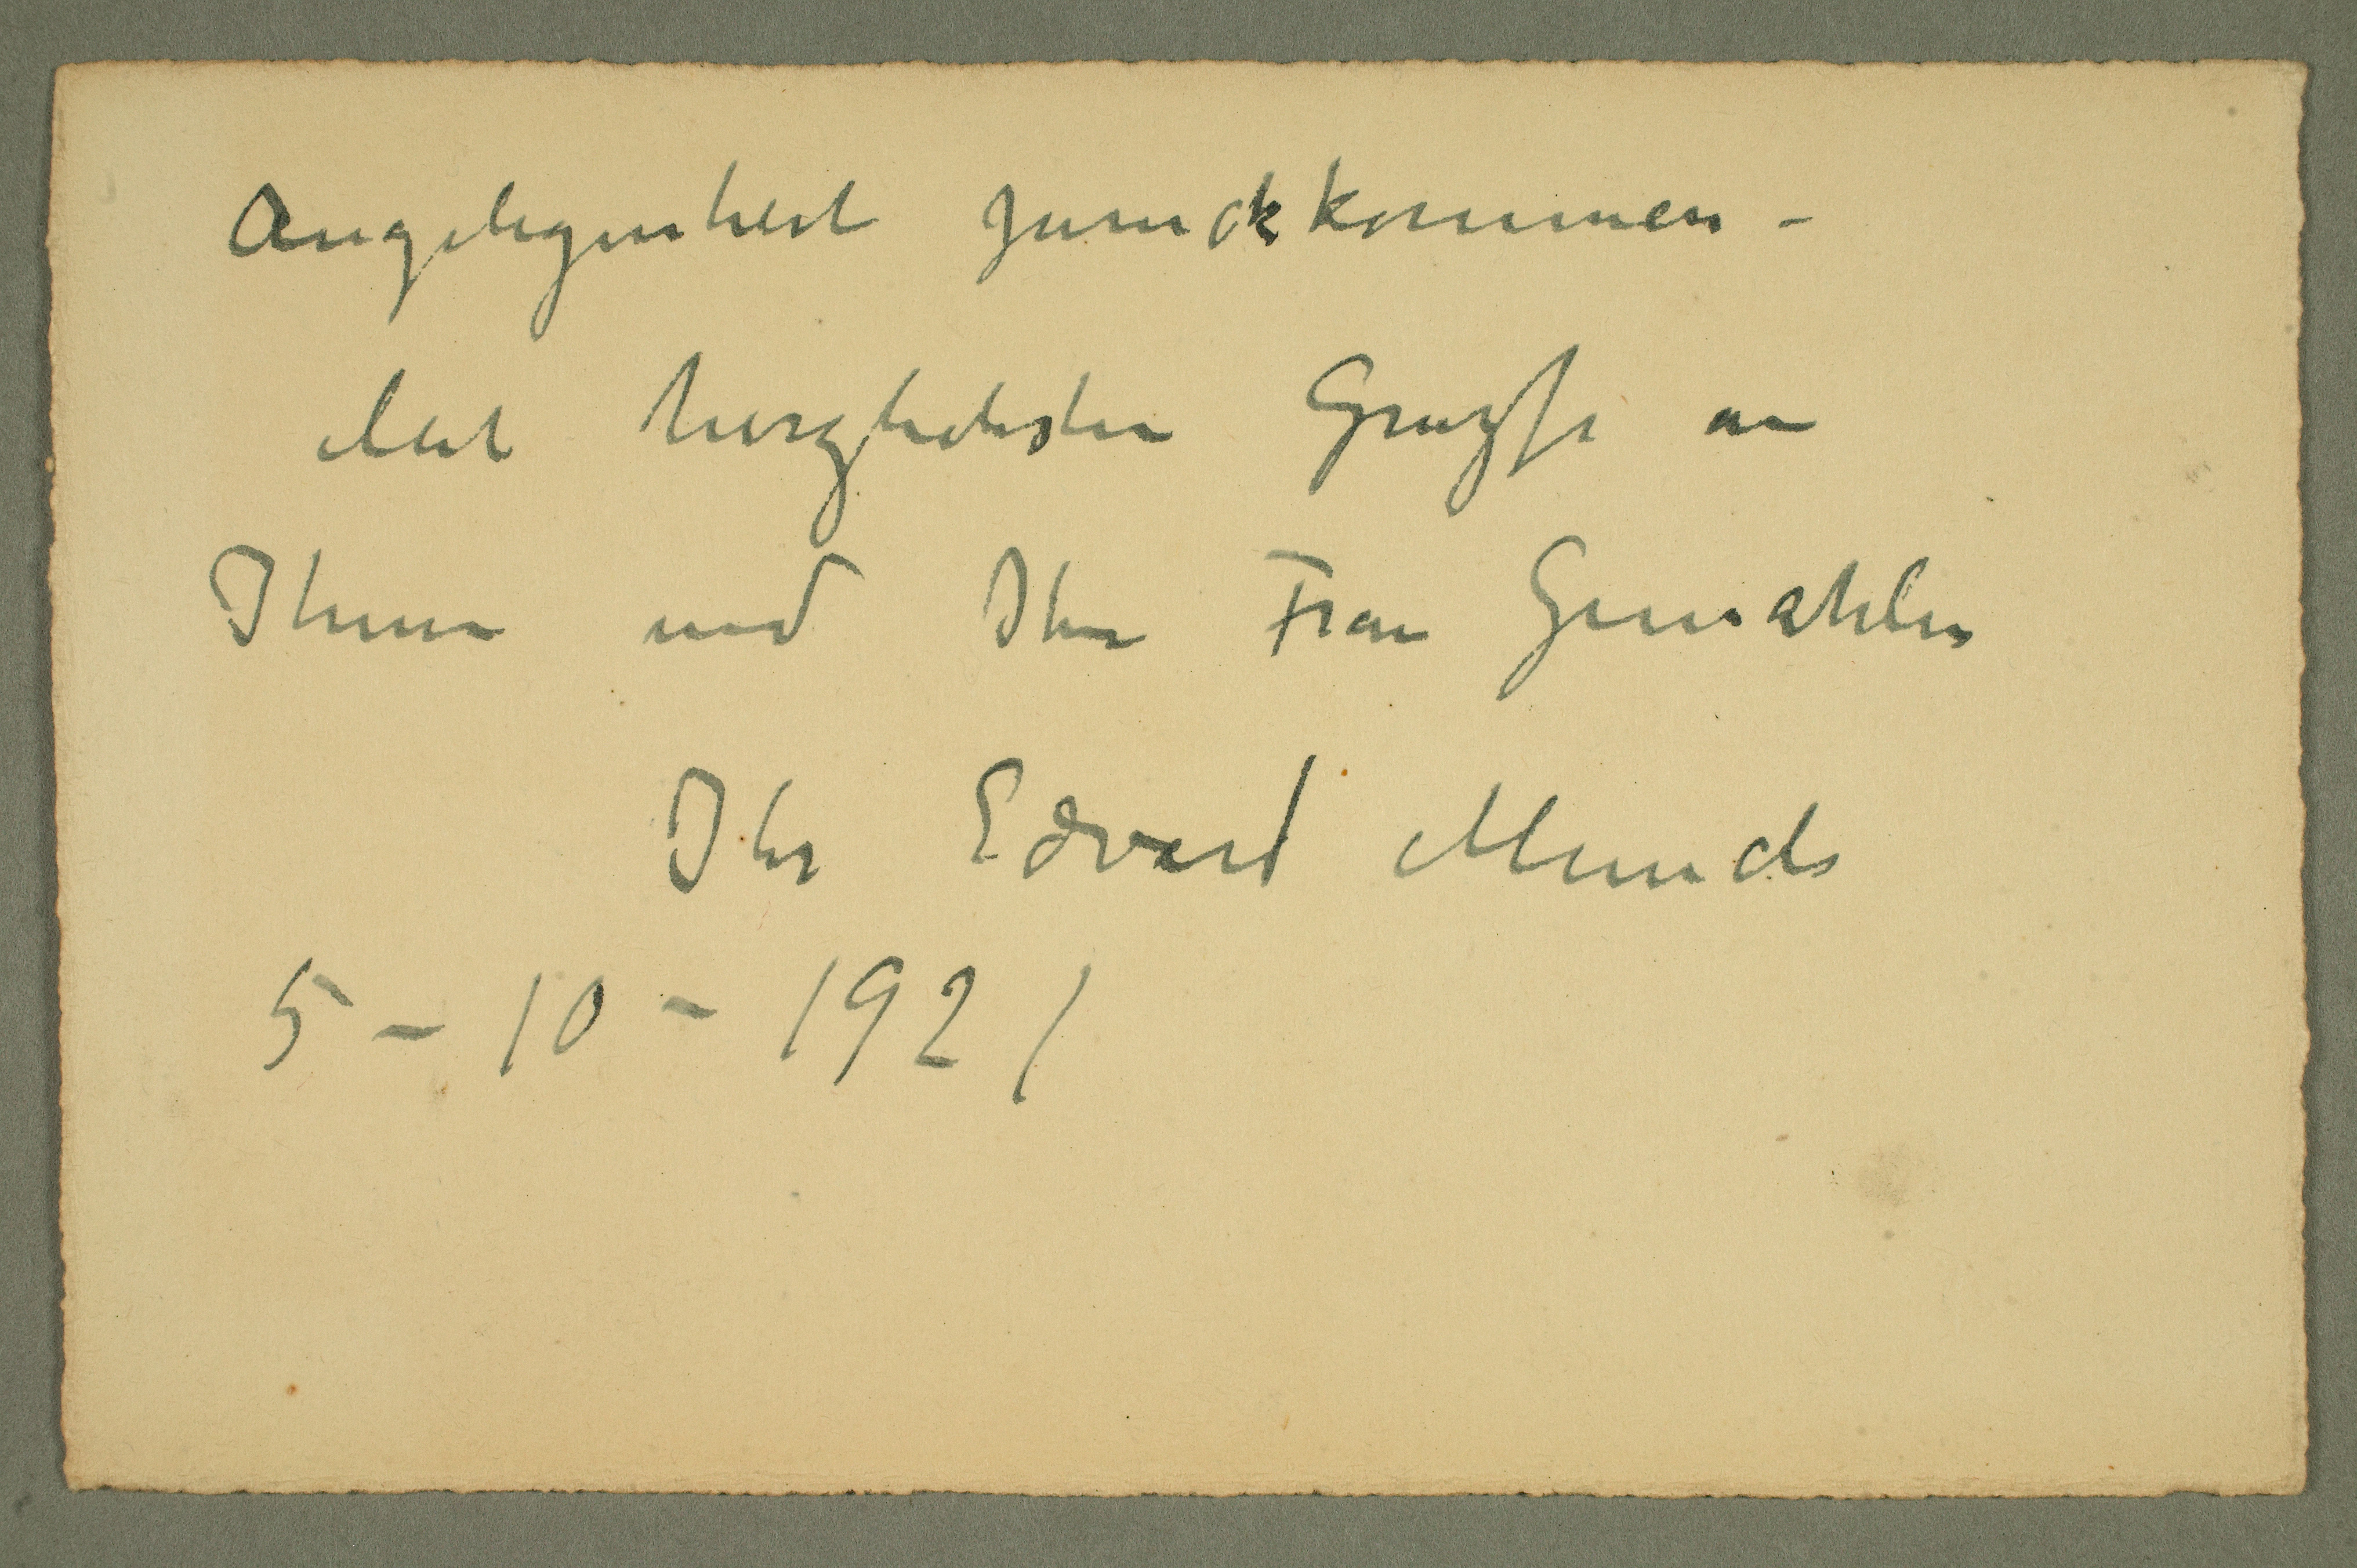 Angelegenheit zuruckkommen –
Mit herzlichsten Gruzse an
Ihnen und Ihre Frau Gemahlin
Ihr Edvard Munch
5 – 10 – 1921